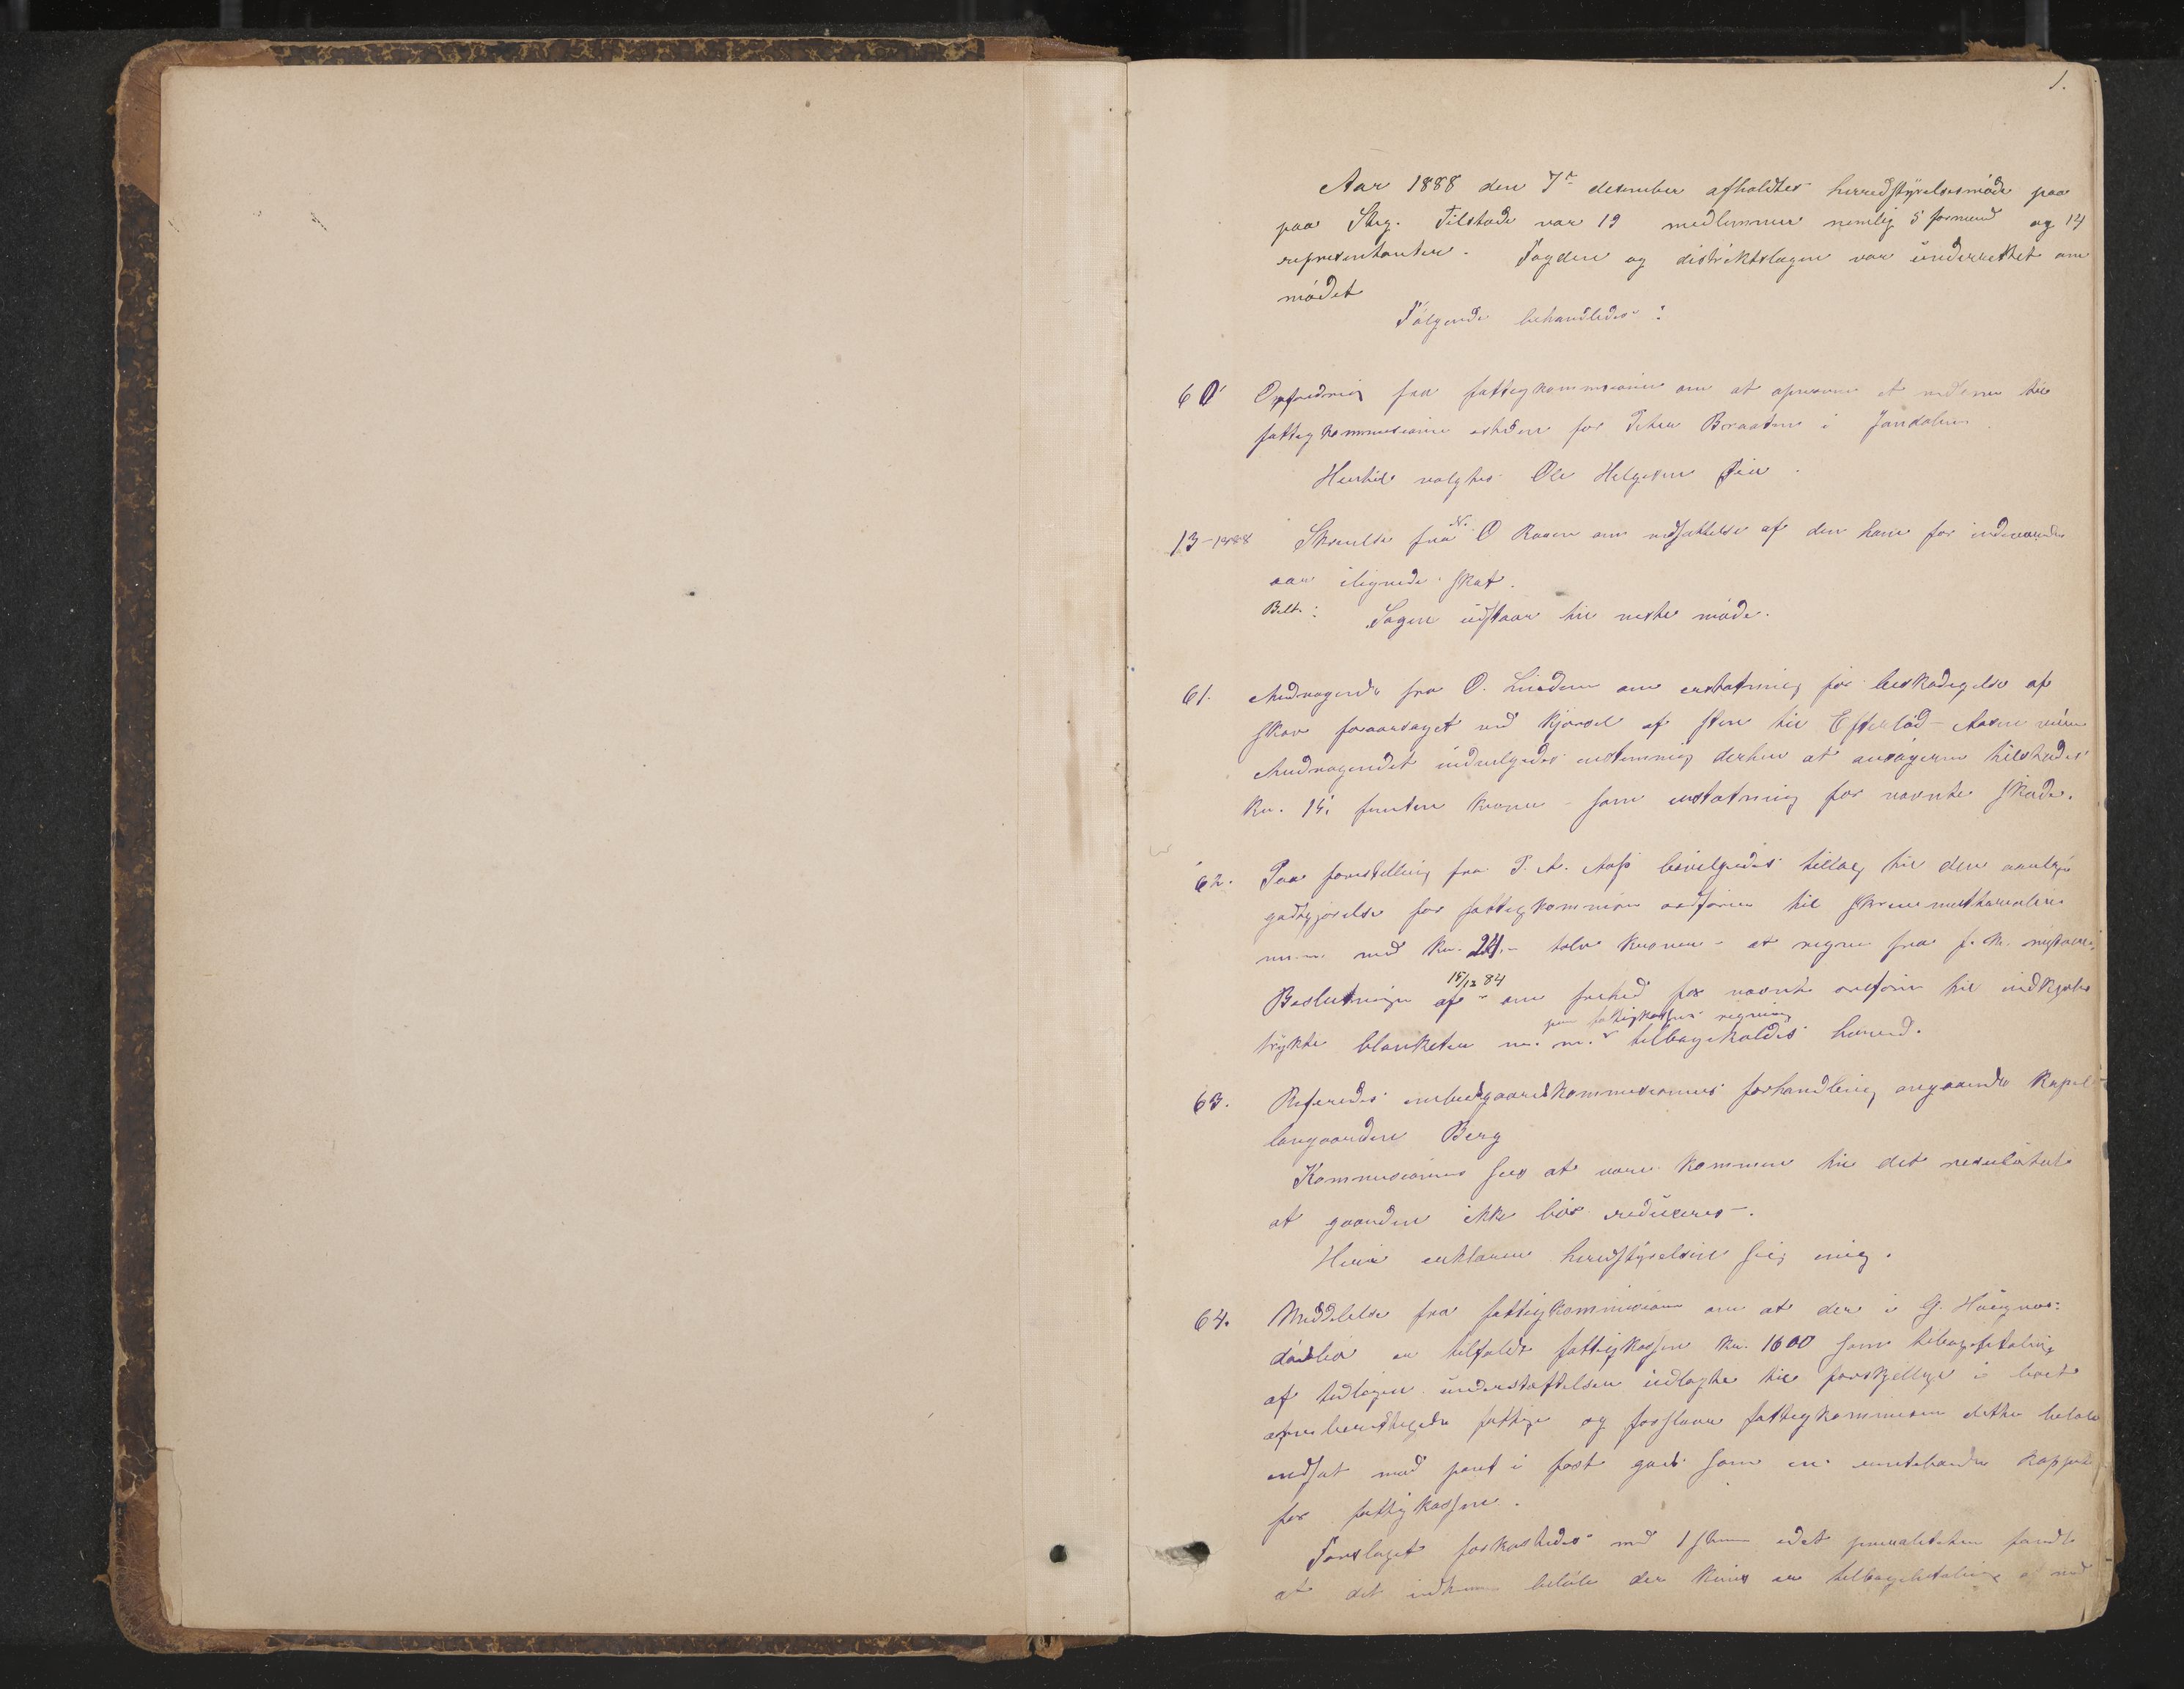 1.
Aar 1888 den 7de desember afholdtes herredstyrelsesmøde paa
paa Steg. Tilstede var 19 medlemmer nemlig 5 formænd og 14
representanter. Fogden og distriktslægen var underrettet om
mødet
Følgende behandledes:
60 Opfordring fra fattigkommissionen om at opnevne et medlem til
fattigkommissionen istedenfor Peter Braaten i Jondalen
Hertil valgtes Ole Helgesen Lia.
13-1888 Skrivelse fra N. O Raaen om nedsættelse af den ham for indeværende
aar ilignede skat.
Besl.: Sagen udstaar til neste møde.
61. Andragende fra O. Linden om erstatning for beskadigelse af
skov foraarsaget ved kjørsel af sten til Efteløt-Aasen veien
Andragendet indvilgedes enstemmig derhen at ansøgeren tilstodes
Kr. 15, femten kroner - som erstatning for nævnte skade.
62. Paa forestilling fra T. A. Aas bevilgedes tillæg til den aarlige
godtgjørelse for fattigkommissionens ordfører til skrivematerialier
m. m. med Kr. 24.- tolv kroner - at regne fra f. k. nytaar.
Beslutningen af 15/12 84 om frihed for nævnte ordfører til indkjøbe
trykte blanketer m. m. paa fattigkassens regning tilbagekaldes herved.
63. Refereredes embedsgaardskommissionens forhandling angaaende Kapel-
langaarden Berg
Kommissionen sees at være kommen til det resultat
at gaarden ikke bør reduceres.
Heri erklærer herredstyrelsen sig enig.
64. Meddelelse fra fattigkommissionen om at der i G.
dødsbo er tilfaldt fattigkassen Kr. 1600 som tilbagebetaling
af tidligere understøttelser udlagte til forskjellige i boet
arveberettigede fattige og forslaar fattigkommissionen dette beløb
indsat mod pant i fast gods som en rentebærende kapital
for fattigkassen.
Forslaget forkastedes med 1 stemme idet pluraliteten fandt
at det indkomne beløb der kun er tilbagebetaling af